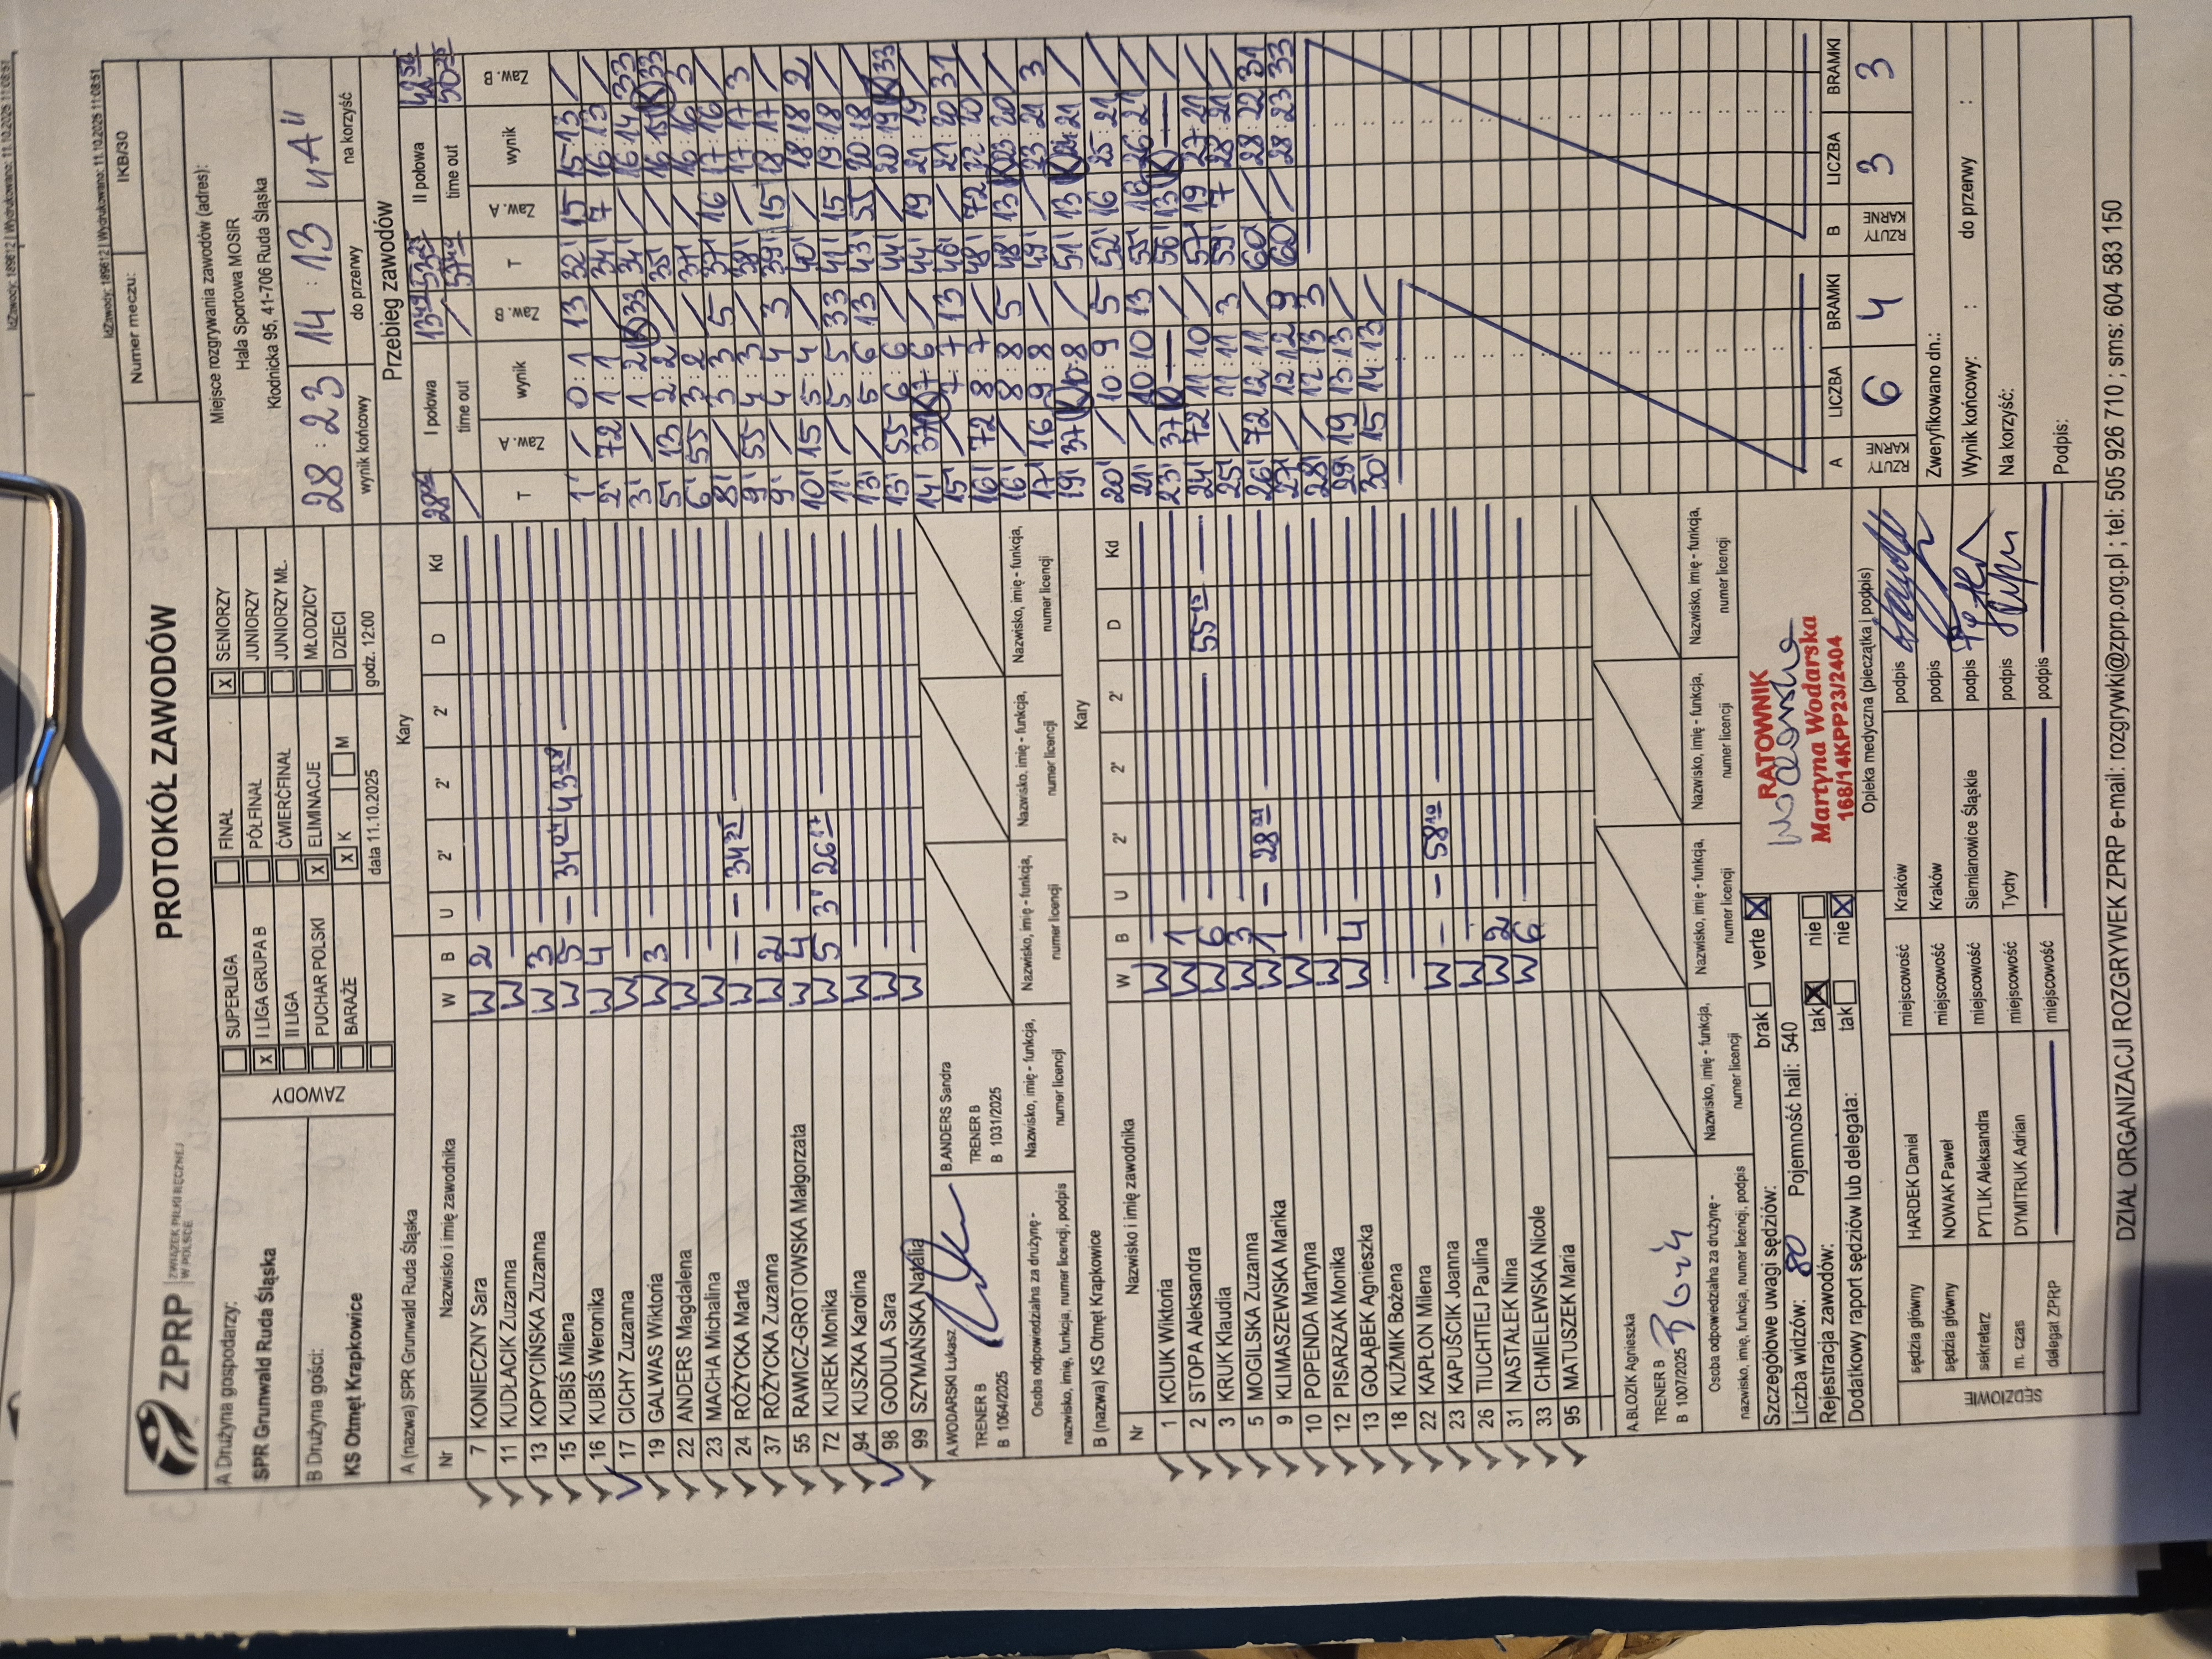 IdZawody: 189612 | Wydrukowano: 11.10.2025 11:08:51
ZPRP ZWIĄZEK PIŁKI RĘCZNEJ W POLSCE
PROTOKÓŁ ZAWODÓW
Numer meczu: IKB/30
A Drużyna gospodarzy:
SPR Grunwald Ruda Śląska
B Drużyna gości:
KS Otmęt Krapkowice
ZAWODY
SUPERLIGA
X I LIGA GRUPA B
II LIGA
PUCHAR POLSKI
BARAŻE
FINAŁ
PÓŁFINAŁ
ĆWIERĆFINAŁ
X ELIMINACJE
X K M
data 11.10.2025
X SENIORZY
JUNIORZY
JUNIORZY MŁ.
MŁODZICY
DZIECI
godz. 12:00
Miejsce rozgrywania zawodów (adres):
Hala Sportowa MOSiR
Kłodnicka 95, 41-706 Ruda Śląska
28 : 23 14 : 13 "A"
wynik końcowy do przerwy na korzyść
A (nazwa) SPR Grunwald Ruda Śląska Kary
Nr Nazwisko i imię zawodnika W B U 2' 2' 2' D Kd
7 KONIECZNY Sara W 2
11 KUDŁACIK Zuzanna W
13 KOPYCIŃSKA Zuzanna W 3
15 KUBIŚ Milena W 5 — 34 04 43 28 —
16 KUBIŚ Weronika W 4
17 CICHY Zuzanna W
19 GALWAS Wiktoria W 3
22 ANDERS Magdalena W
23 MACHA Michalina W
24 RÓŻYCKA Marta W — — 34 25 —
37 RÓŻYCKA Zuzanna W 2
55 RAWICZ-GROTOWSKA Małgorzata W 4
72 KUREK Monika W 5 3' 26 17 —
94 KUSZKA Karolina W
98 GODULA Sara W
99 SZYMAŃSKA Natalia W
A.WODARSKI Łukasz
TRENER B
B 1064/2025
B.ANDERS Sandra
TRENER B
B 1031/2025
Osoba odpowiedzialna za drużynę -
nazwisko, imię, funkcja, numer licencji, podpis
Nazwisko, imię - funkcja,
numer licencji
Nazwisko, imię - funkcja,
numer licencji
Nazwisko, imię - funkcja,
numer licencji
Nazwisko, imię - funkcja,
numer licencji
B (nazwa) KS Otmęt Krapkowice Kary
Nr Nazwisko i imię zawodnika W B U 2' 2' 2' D Kd
1 KCIUK Wiktoria W
2 STOPA Aleksandra W 1
3 KRUK Klaudia W 6 — 55 15 —
5 MOGILSKA Zuzanna W 3
9 KLIMASZEWSKA Marika W 1 — 28 21 —
10 POPENDA Martyna W
12 PISARZAK Monika W
13 GOŁĄBEK Agnieszka W 4
18 KUŹMIK Bożena
22 KAPLON Milena W — — 58 10 —
23 KAPUŚCIK Joanna W
26 TIUCHTIEJ Paulina W
31 NASTAŁEK Nina W 2
33 CHMIELEWSKA Nicole W 6
95 MATUSZEK Maria
A.BLOZIK Agnieszka
TRENER B
B 1007/2025
Osoba odpowiedzialna za drużynę -
nazwisko, imię, funkcja, numer licencji, podpis
Nazwisko, imię - funkcja,
numer licencji
Nazwisko, imię - funkcja,
numer licencji
Nazwisko, imię - funkcja,
numer licencji
Nazwisko, imię - funkcja,
numer licencji
Szczegółowe uwagi sędziów: brak verte X
Liczba widzów: 80 Pojemność hali: 540
Rejestracja zawodów: tak X nie
Dodatkowy raport sędziów lub delegata: tak nie X
RATOWNIK
Martyna Wodarska
168/14KPP23/2404
Opieka medyczna (pieczątka i podpis)
SĘDZIOWIE
sędzia główny HARDEK Daniel miejscowość Kraków podpis
sędzia główny NOWAK Paweł miejscowość Kraków podpis
sekretarz PYTLIK Aleksandra miejscowość Siemianowice Śląskie podpis
m. czas DYMITRUK Adrian miejscowość Tychy podpis
delegat ZPRP miejscowość podpis
Przebieg zawodów
I połowa
time out
II połowa
time out
T Zaw. A wynik Zaw. B
1' / 0:1 13
2' 72 1:1 /
3' / 1:2 K 33
5' 13 2:2 /
6' 55 3:2 /
8' / 3:3 5
9' 55 4:3 /
9' / 4:4 3
10' 15 5:4 /
11' / 5:5 33
13' / 5:6 13
13' 55 6:6 /
14' 37 K 7:6 /
15' / 7:7 13
16' 72 8:7 /
16' / 8:8 5
17' 16 9:8 /
19' 37 K 10:8 /
20' / 10:9 5
21' / 10:10 13
23' 37 K — /
24' 72 11:10 /
25' / 11:11 3
26' 72 12:11 /
27' / 12:12 9
28' / 12:13 3
29' 19 13:13 /
30' 15 14:13 /
T Zaw. A wynik Zaw. B
32' 15 15:13 /
34' 7 16:13 /
34' / 16:14 33
35' / 16:15 K 33
37' / 16:16 3
37' 16 17:16 /
38' / 17:17 3
39' 15 18:17 /
40' / 18:18 2
41' 15 19:18 /
43' 55 20:18 /
44' / 20:19 K 33
44' 19 21:19 /
46' / 21:20 31
48' 72 22:20 /
48' 13 K 23:20 /
49' / 23:21 3
51' 13 K 24:21 /
52' 16 25:21 /
55' 16 26:21 /
56' 13 K — /
57' 19 27:21 /
59' 7 28:21 /
60' / 28:22 31
60' / 28:23 33
A RZUTY KARNE LICZBA BRAMKI B RZUTY KARNE LICZBA BRAMKI
6 4 3 3
Zweryfikowano dn.:
Wynik końcowy: : do przerwy :
Na korzyść:
Podpis:
DZIAŁ ORGANIZACJI ROZGRYWEK ZPRP e-mail: rozgrywki@zprp.org.pl ; tel: 505 926 710 ; sms: 604 583 150